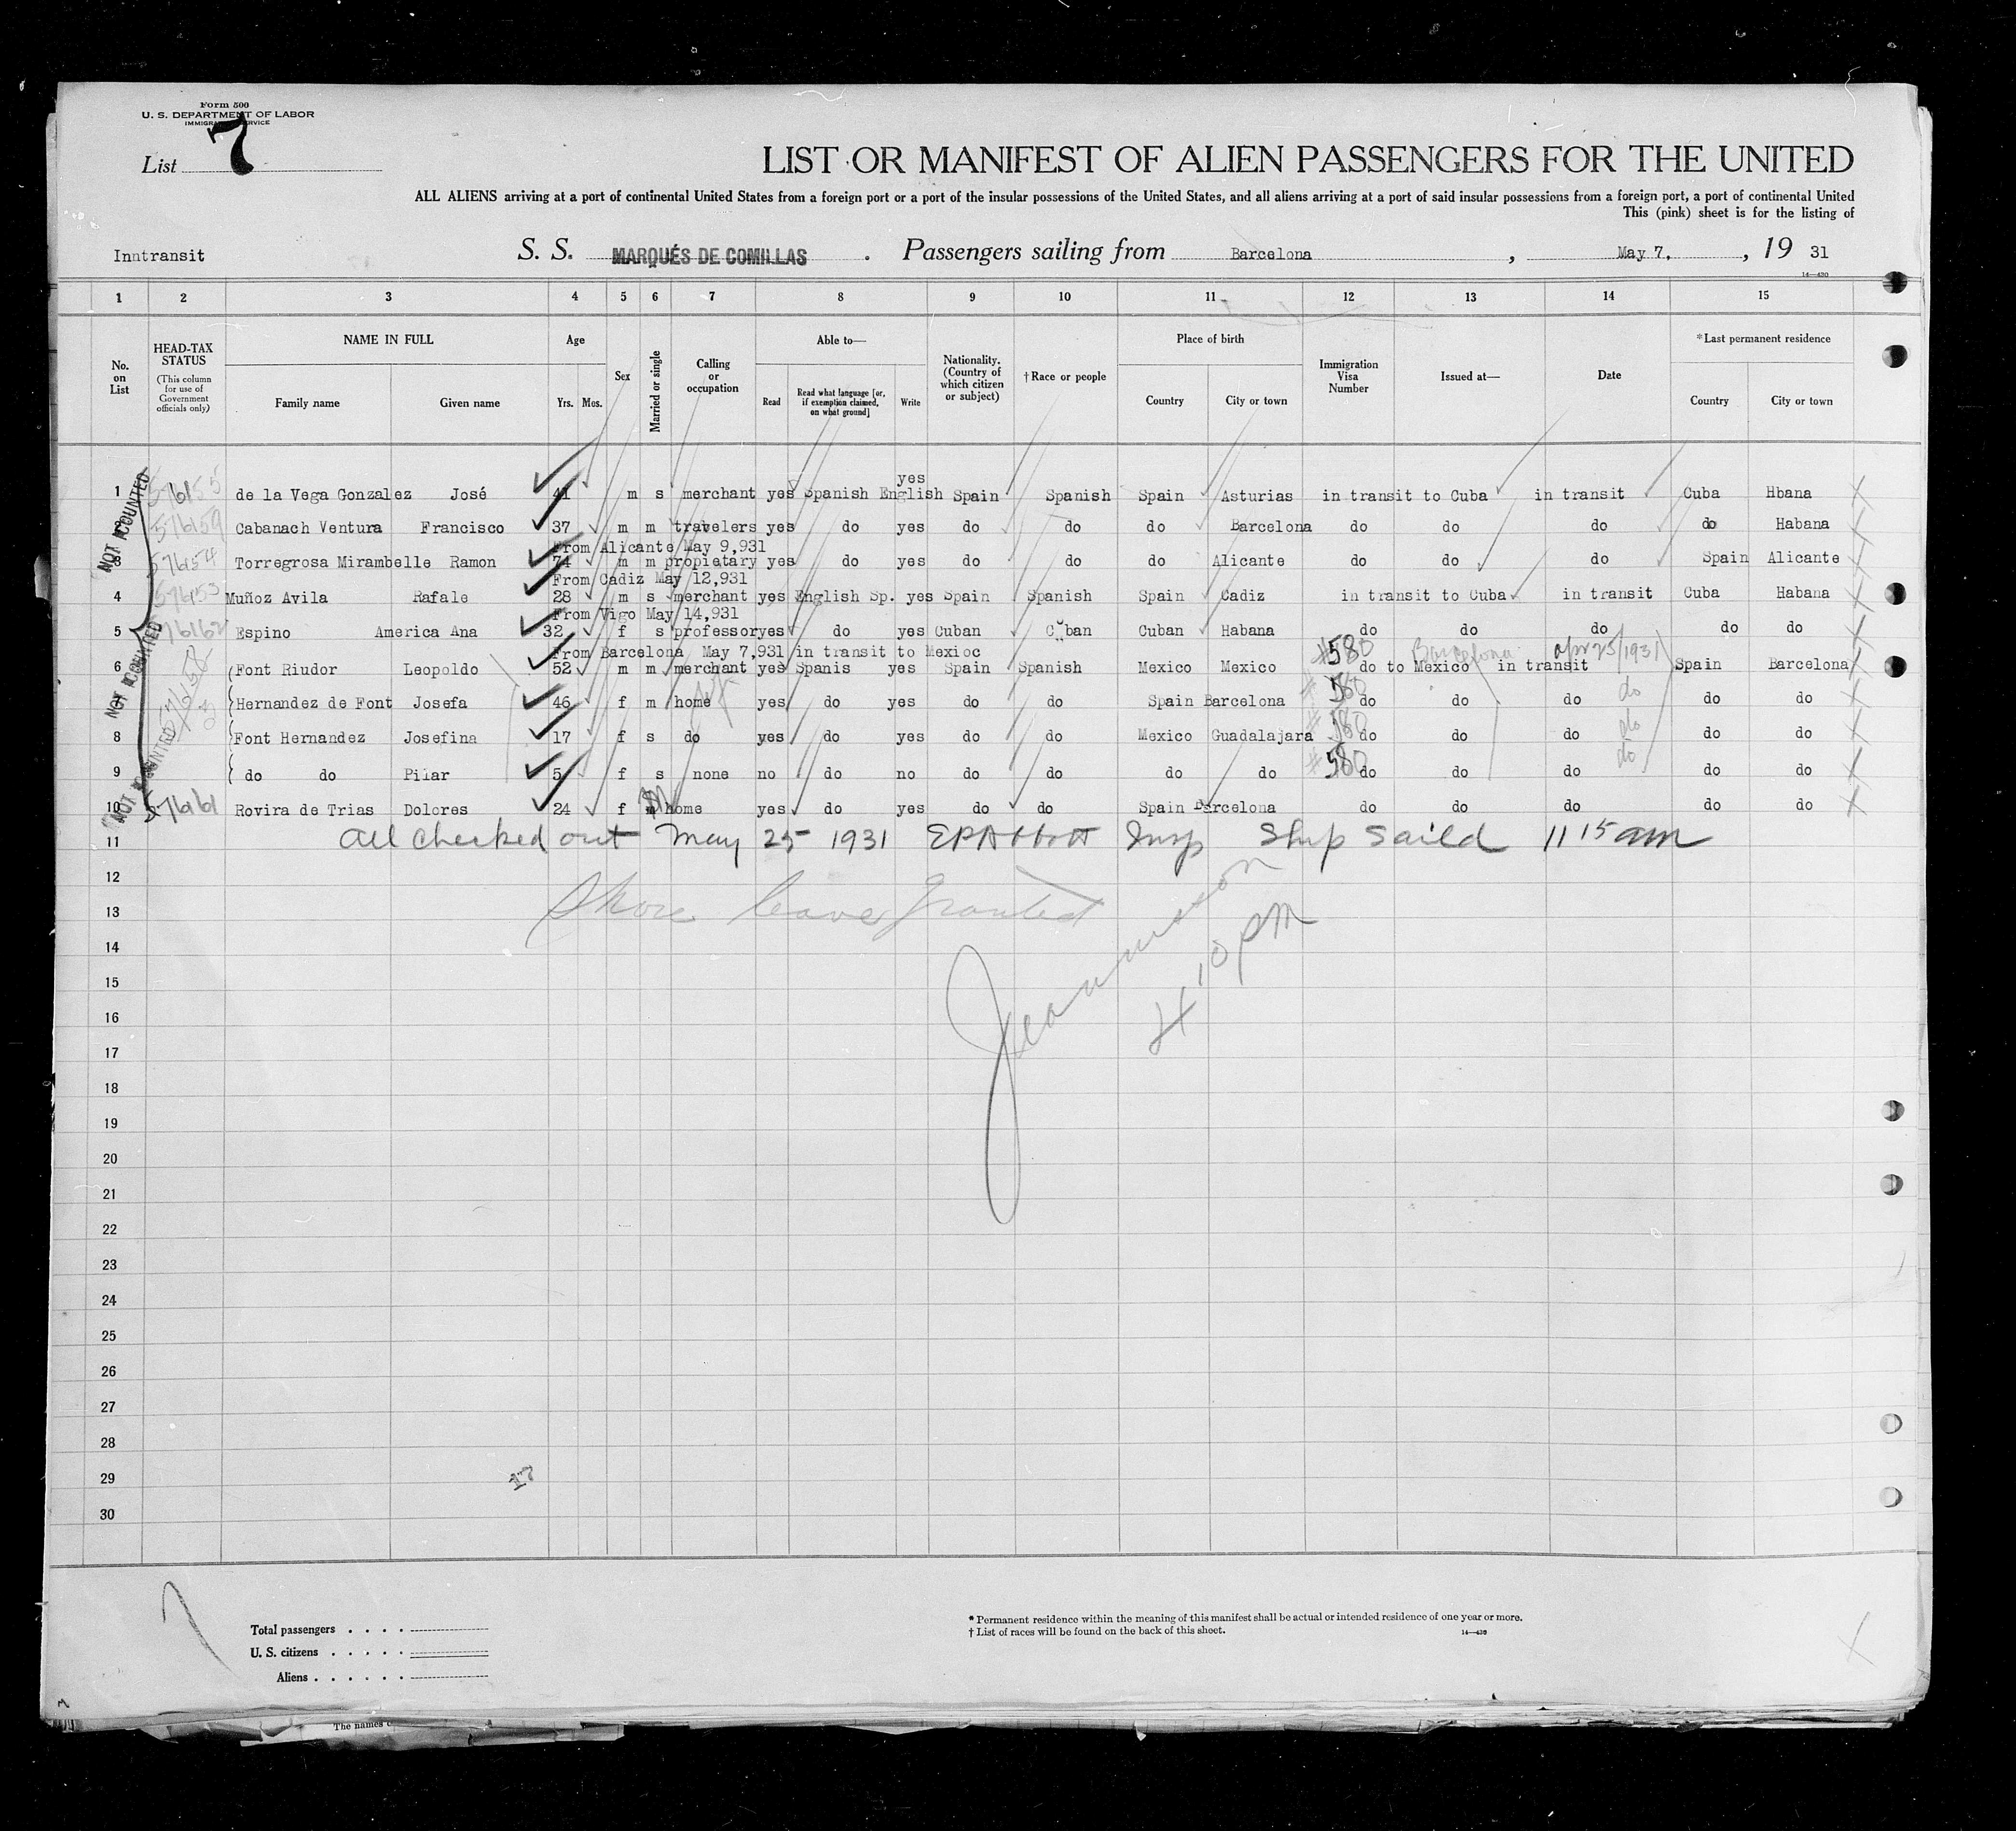 Form 500
U. S. DEPARTMENT OF LABOR
IMMIGRATION SERVICE
List 7
LIST OR MANIFEST OF ALIEN PASSENGERS FOR THE UNITED
ALL ALIENS arriving at a port of continental United States from a foreign port or a port of the insular possessions of the United States, and all aliens arriving at a port of said insular possessions from a foreign port, a port of continental United
This (pink) sheet is for the listing of
Inntransit S. S. MARQUÉS DE COMILLAS . Passengers sailing from Barcelona , May 7. , 19 31
14—430
1 2 3 4 5 6 7 8 9 10 11 12 13 14 15
No. on List
HEAD-TAX STATUS (This column for use of Government officials only)
NAME IN FULL Family name Given name
Age Yrs. Mos.
Sex
Married or single
Calling or occupation
Able to— Read Read what language [or, if exemption claimed, on what ground] Write
Nationality. (Country of which citizen or subject)
† Race or people
Place of birth Country City or town
Immigration Visa Number
Issued at—
Date
* Last permanent residence Country City or town
yes
1 576155 de la Vega Gonzalez José 41 m s merchant yes Spanish English Spain Spanish Spain Asturias in transit to Cuba in transit Cuba Hbana
2 576159 Cabanach Ventura Francisco 37 m m travelers yes do yes do do do Barcelona do do do do Habana
From Alicante May 9,931
3 576154 Torregrosa Mirambelle Ramon 74 m m propietary yes do yes do do do Alicante do do do Spain Alicante
From Cadiz May 12,931
4 576153 Muñoz Avila Rafale 28 m s merchant yes English Sp. yes Spain Spanish Spain Cadiz in transit to Cuba in transit Cuba Habana
From Vigo May 14,931
5 576162 Espino America Ana 32 f s professor yes do yes Cuban Cuban Cuban Habana do do do do do
From Barcelona May 7,931 in transit to Mexioc #580 Barcelona apr 25/1931
6 (Font Riudor Leopoldo 52 m m merchant yes Spanis yes Spain Spanish Mexico Mexico do to Mexico in transit Spain Barcelona
# 580 do
{Hernandez de Font Josefa 46 f m home yes do yes do do Spain Barcelona do do do do do
# 580 do
8 {Font Hernandez Josefina 17 f s do yes do yes do do Mexico Guadalajara do do do do do
# 580 do
9 { do do Pilar 5 f s none no do no do do do do do do do do do
10 57661 Rovira de Trias Dolores 24 f m M home yes do yes do do Spain Barcelona do do do do do
NOT COUNTED
NOT COUNTED
NOT COUNTED
11 All checked out May 25 1931 EPAbbott Insp Ship Saild 11 15 am
12
13 Shore leave granted
14
15
4 10 PM
16
17
18
19
20
21
22
23
24
25
26
27
28
29 17
30
Total passengers . . . .
U. S. citizens . . . . .
Aliens . . . . . .
* Permanent residence within the meaning of this manifest shall be actual or intended residence of one year or more.
† List of races will be found on the back of this sheet.
14—430
The names